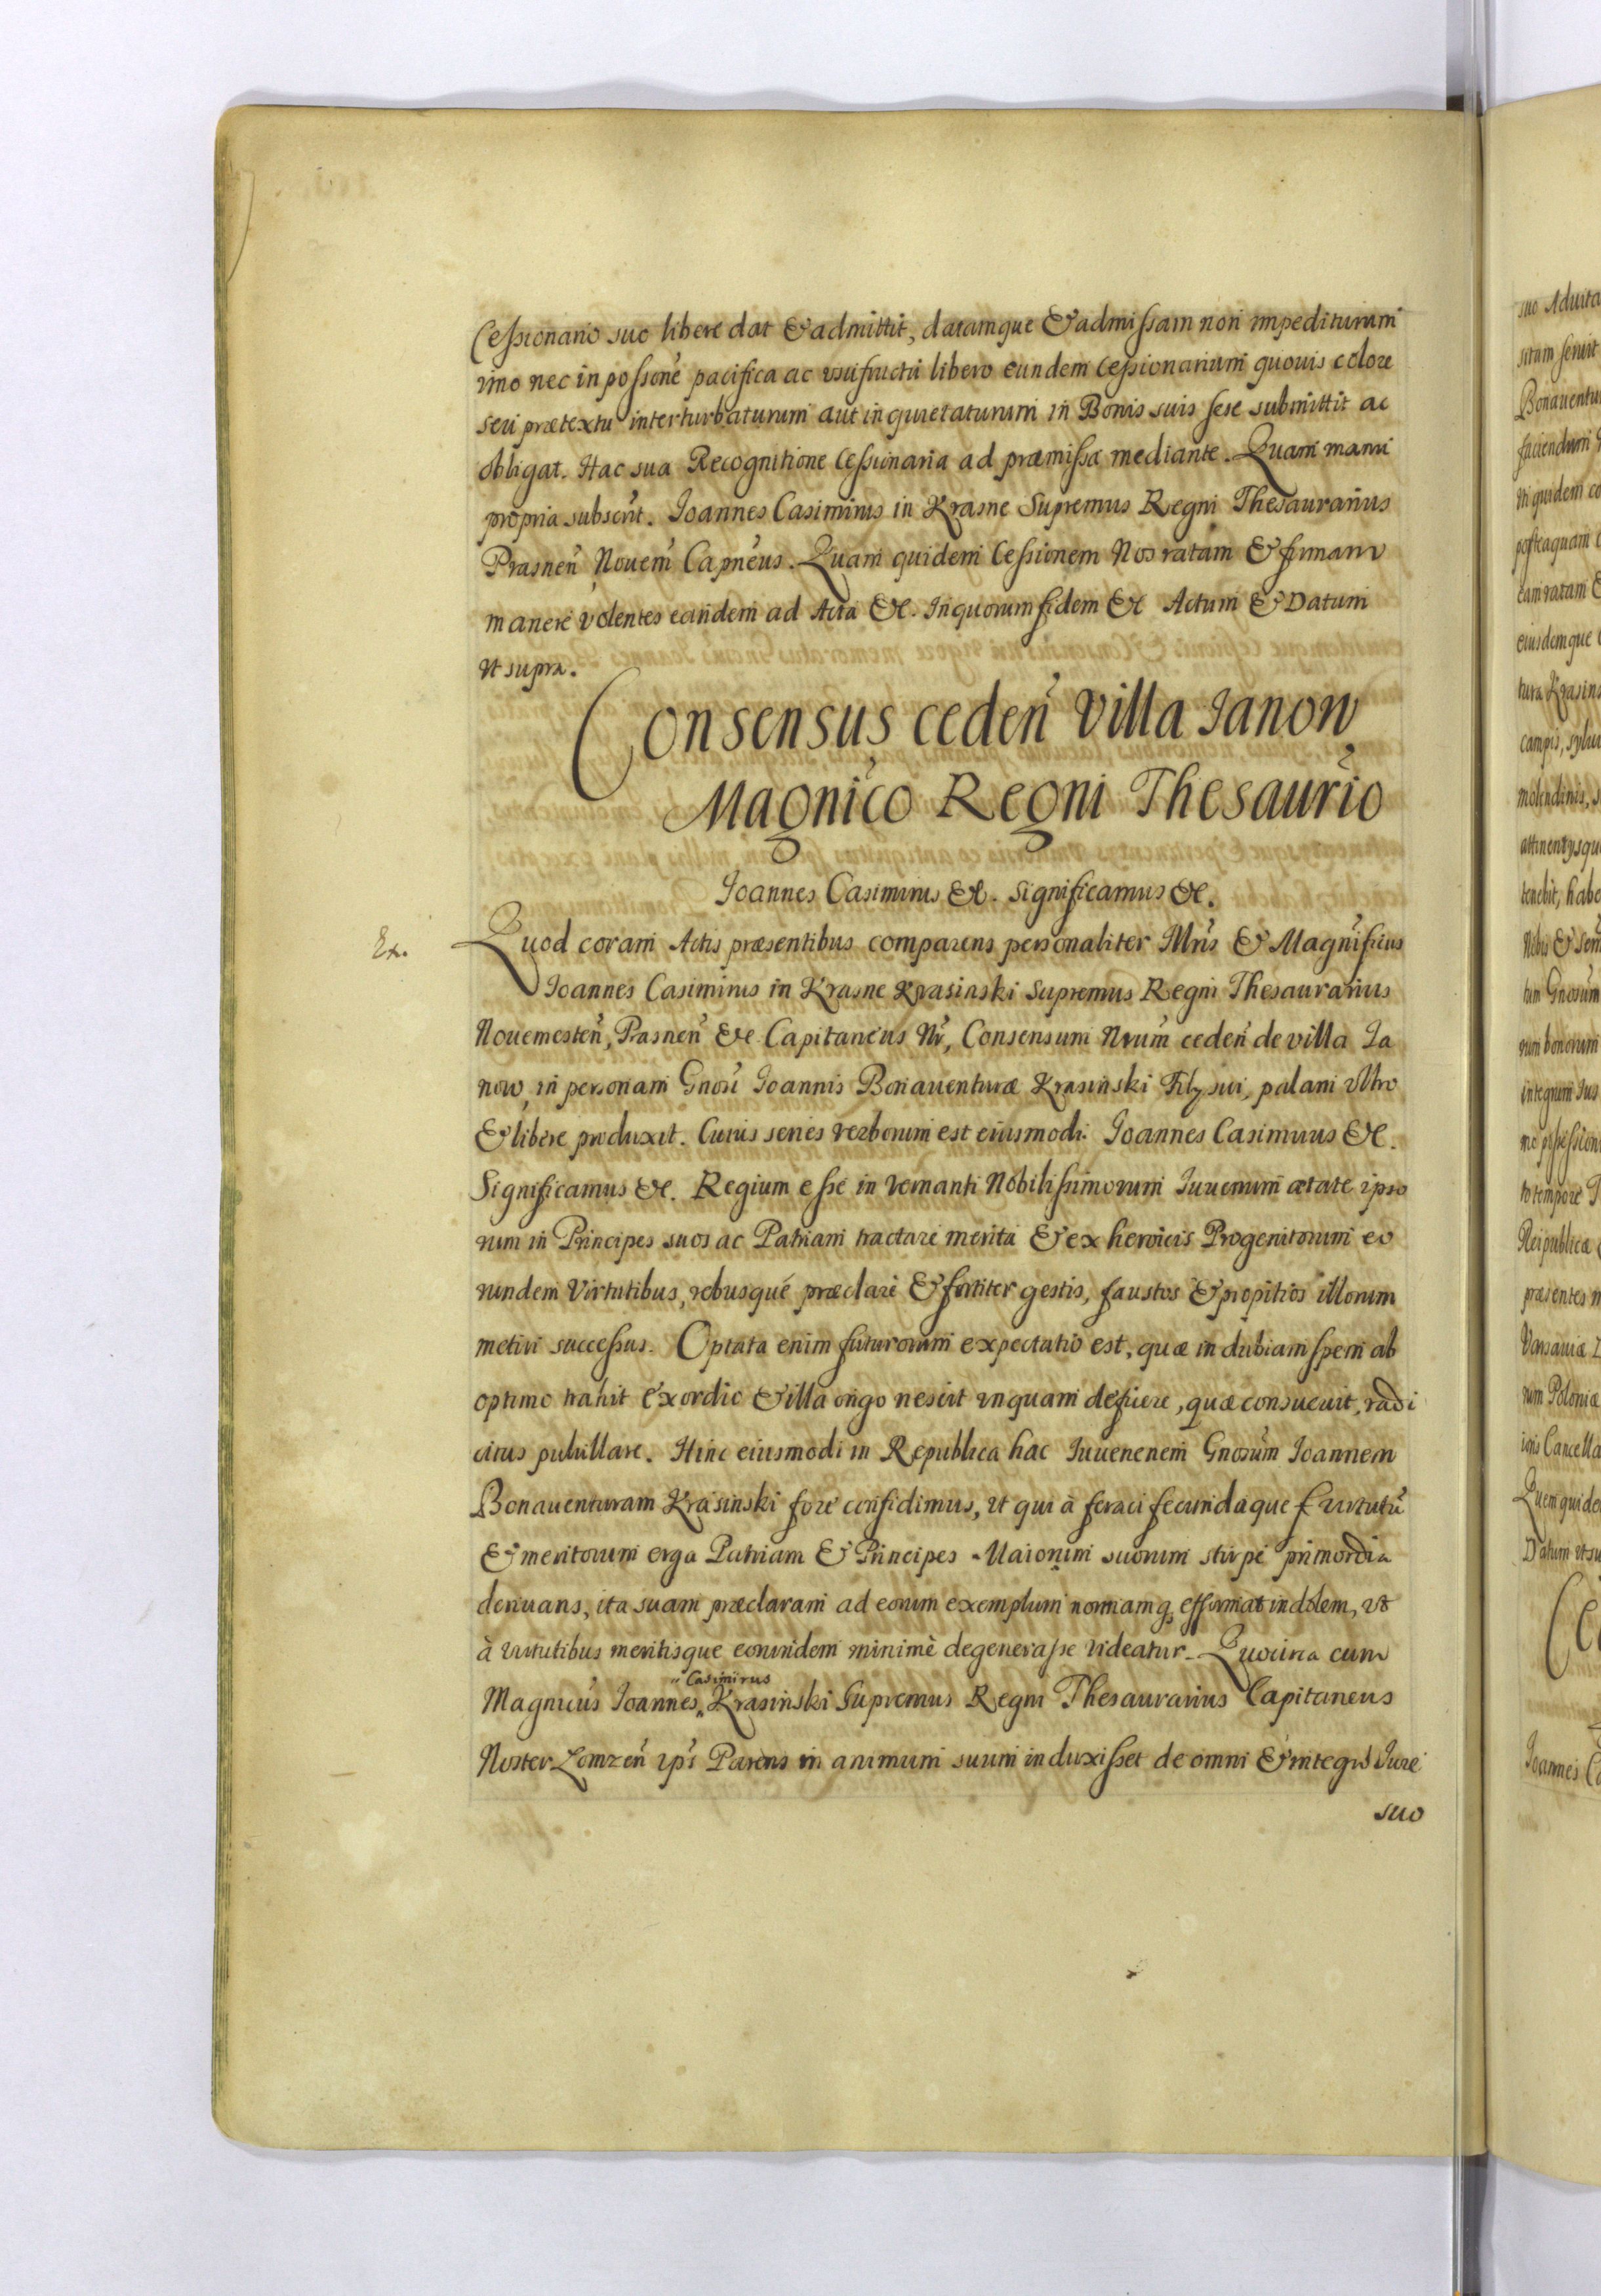 Cessionario suo libere dat & admittit, datamque & admissam non impediturum
imo nec in possone pacifica ac usufructu libero eundem Cessionarium quovis colore
seu prætextu interturbaturum aut inquietaturum in Bonis suis sese submittit ac
obligat. Hac sua Recognitione Cessionaria ad præmissa mediante. Quam manu
propria subscrt. Joannes Casimirus in Krasne Supremus Regni Thesaurarius
Prasnen Novem Capneus. Quam quidem Cessionem Nos ratam & firmam
manere volentes eandem ad Acta &c. In quorum fidem &c Actum & Datum
ut supra.
Consensus ceden Villa Janow
Magnico Regni Thesaurio
Joannes Casimirus &c. Significamus &c.
Ex.
Quod coram Actis præsentibus comparens personaliter Illris & Magnificus
Joannes Casimirus in Krasne Krasinski Supremus Regni Thesaurarius
Novemesten, Prasnen &c Capitaneus Nr, Consensum Nrum ceden de villa Ja
now, in personam Gnosi Joannis Bonaventuræ Krasinski Filij sui, palam ultro
& libere produxit. Cuius series verborum est eiusmodi. Joannes Casimirus &c.
Significamus &c. Regium esse in vernanti Nobilissimorum Juvenum ætate ipso
rum in Principes suos ac Patriam tractare merita & ex heroicis Progenitorum eo
rundem Virtutibus, rebusque præclare & fortiter gestis, faustos & propitios illorum
metiri successus. Optata enim futurorum expectatio est, quæ indubiam spem ab
optimo trahit exordio & illa origo nescit unquam deficere, quæ consuevit, radi
citus pulullare. Hinc eiusmodi in Republica hac Juvenenem Gnosum Joannem
Bonaventuram Krasinski fore confidimus, ut qui à feraci fecundaque virtutu
& meritorum erga Patriam & Principes Maiorum suorum stirpe primordia
derivans, ita suam præclaram ad eorum exemplum normamq efformat indolem, ut
à virtutibus meritisque eorundem minimè degenerasse videatur. Quocirca cum
Casimirus
Magnicus Joannes Krasinski Supremus Regni Thesaurarius Capitaneus
Noster Lomzen ipsi Parens in animum suum induxisset de omni & integro Jure
suo